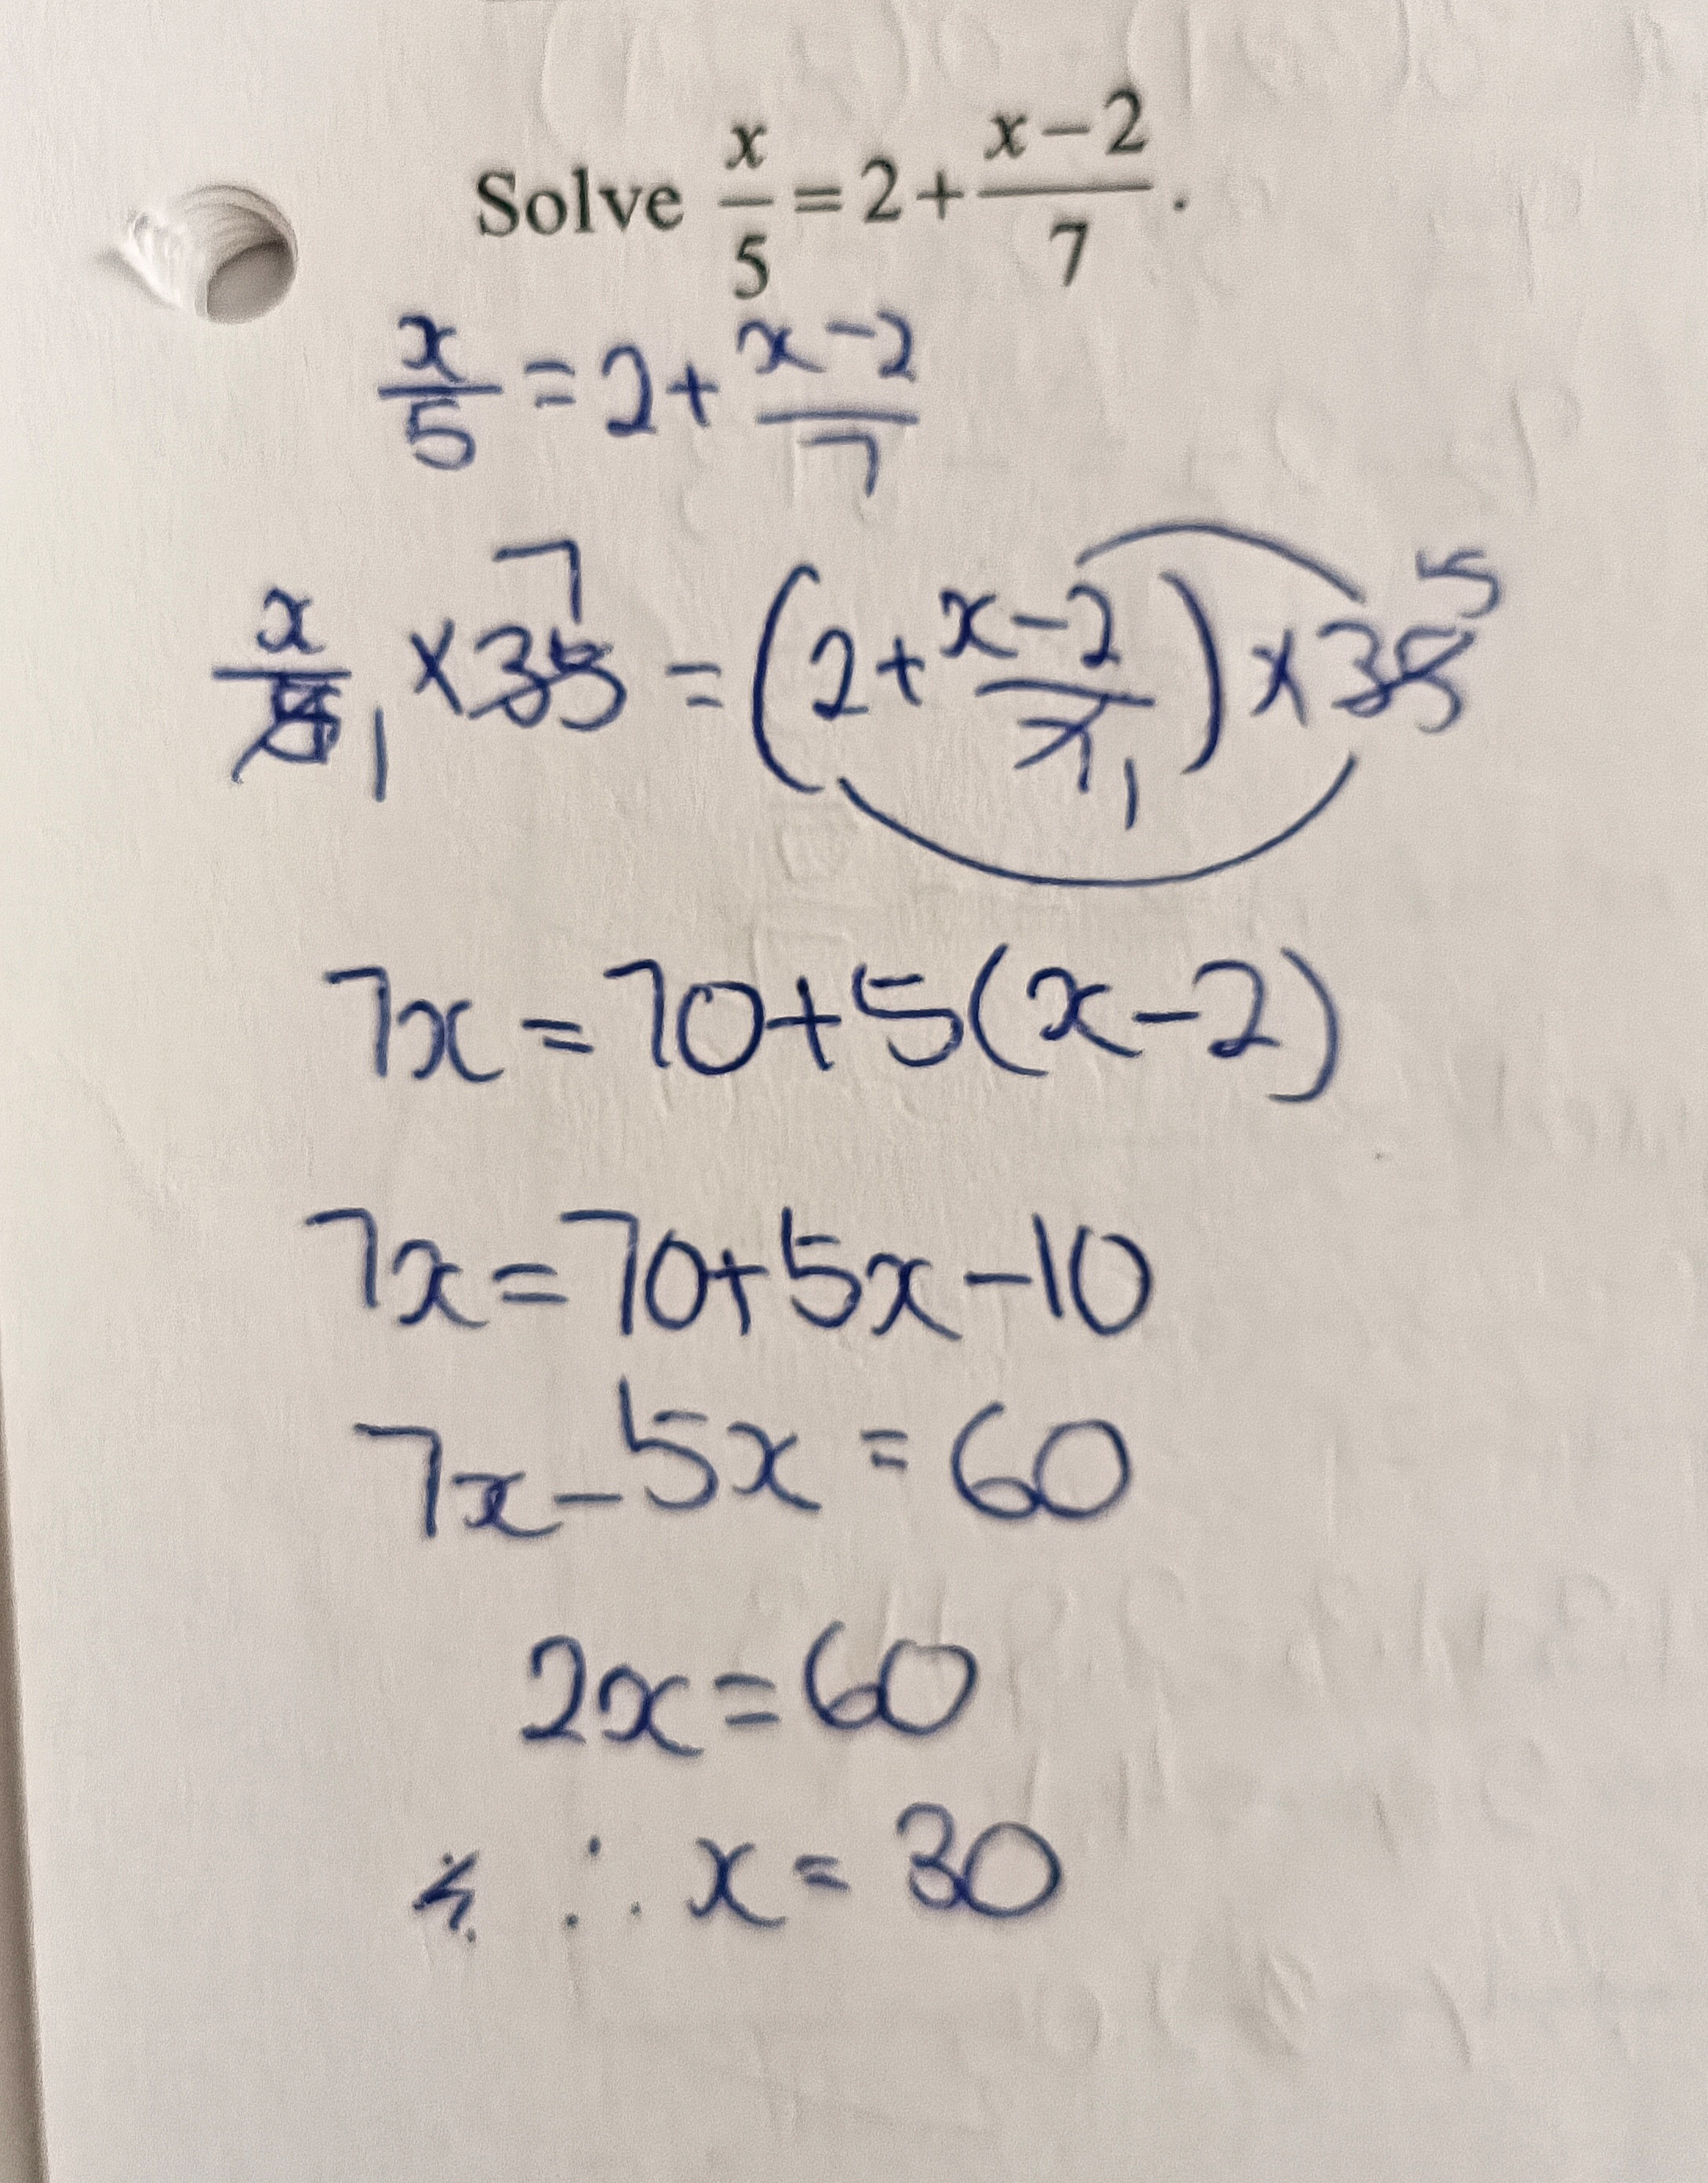 Solve x/5 = 2 + (x-2)/7.
x/5 = 2 + (x-2)/7
x/5 1 × 35 7 = (2 + (x-2)/7 1) × 35 5
7x = 70 + 5(x-2)
7x = 70 + 5x - 10
7x - 5x = 60
2x = 60
∴ x = 30